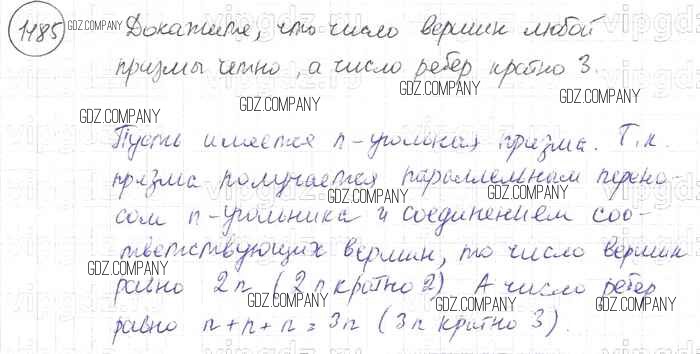 1185 GDZ.COMPANY Докажите, что число вершин любой
призмы четно, а число ребер кратно 3.
GDZ.COMPANY GDZ.COMPANY GDZ.COMPANY
Пусть имеется n-угольная призма. Т.к.
призма получается параллельным перено-
GDZ.COMPANY GDZ.COMPANY
сом n-угольника и соединением соо-
тветствующих вершин, то число вершин
GDZ.COMPANY
равно 2n (2n кратно 2) А число ребер
GDZ.COMPANY GDZ.COMPANY
равно n+n+n = 3n (3n кратно 3).